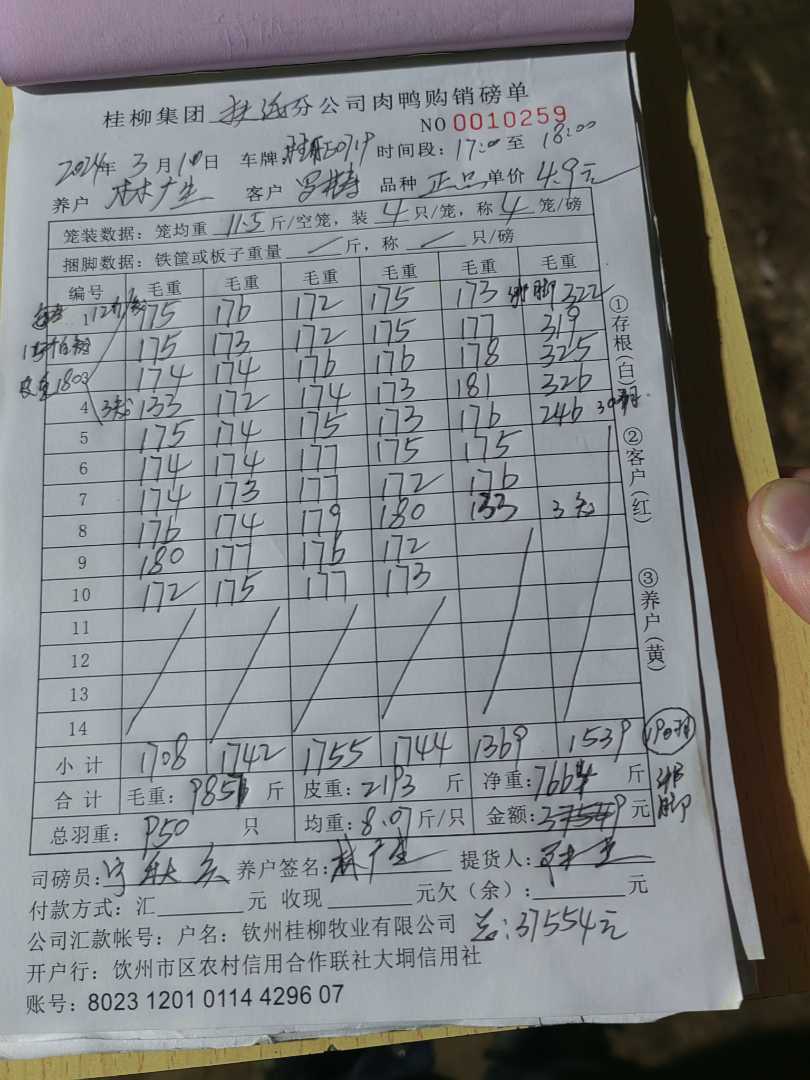 桂柳集团 分公司肉鸭购销磅单
NO 0010259
2024年 3月10日 车牌 0719 时间段: 17:00 至 18:00
养户 林广生 客户 罗 品种 正品 单价 4.9元
笼装数据: 笼均重 11.5 斤/空笼, 装 4 只/笼, 称 4 笼/磅
捆脚数据: 铁筐或板子重量 / 斤, 称 / 只/磅
编号 毛重 毛重 毛重 毛重 毛重 毛重
1 175 176 172 175 173 绑脚 322
175 173 172 175 177 319
174 174 176 176 178 325
皮重1803
4 3只 133 172 174 173 181 326
5 175 174 175 173 176 246
6 174 174 177 175 175
7 174 173 177 172 176
8 176 174 179 180 133 3只
9 180 177 176 172
10 172 175 177 173
11
12
13
14
小计 1708 1742 1755 1744 1369 1539
合计 毛重: 9857 斤 皮重: 2193 斤 净重: 7664 斤
绑脚
总羽重: 950 只 均重: 8.07 斤/只 金额: 元
司磅员: 养户签名: 林广生 提货人:
付款方式: 汇 元 收现 元欠(余): 元
公司汇款帐号: 户名: 钦州桂柳牧业有限公司 总: 37554元
开户行: 钦州市区农村信用合作联社大垌信用社
账号: 8023 1201 0114 4296 07
①存根(白)
②客户(红)
③养户(黄)